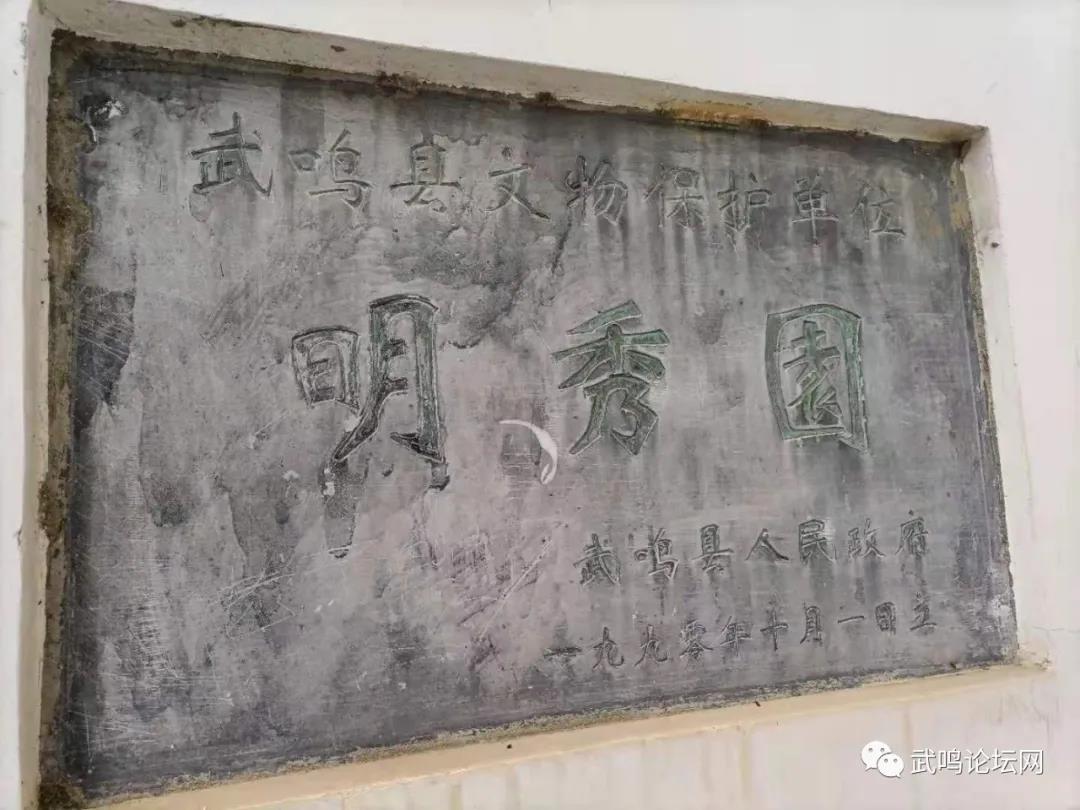 武鸣县文物保护单位
明秀园
武鸣县人民政府
一九九零年十月一日立
武鸣论坛网